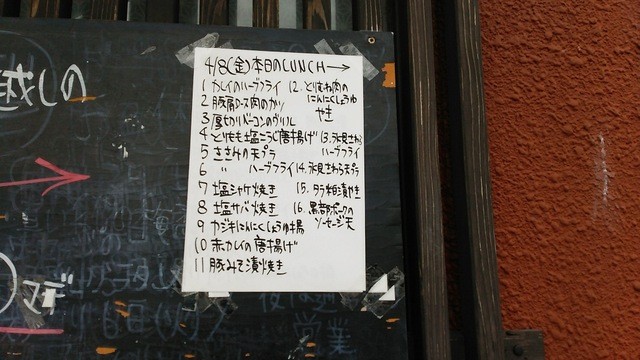 4/8(金)本日のLUNCH→
1 カレイのハーブフライ
2 豚肩ロース肉のカツ
3 厚切りベーコンのグリル
4 とりもも塩こうじ唐揚げ
5 ささみの天プラ
6 〃 ハーブフライ
7 塩シャケ焼き
8 塩サバ焼き
9 カジキにんにくしょうゆ揚
10 赤カレイの唐揚げ
11 豚みそ漬焼き
12.とりむね肉の
にんにくしょうゆ
やき
13.氷見さわら
ハーブフライ
14.氷見さわら天プラ
15.タラ粕漬やき
16.黒部ポークの
ソーセージ天
越しの
マデ
16日(火)
営業